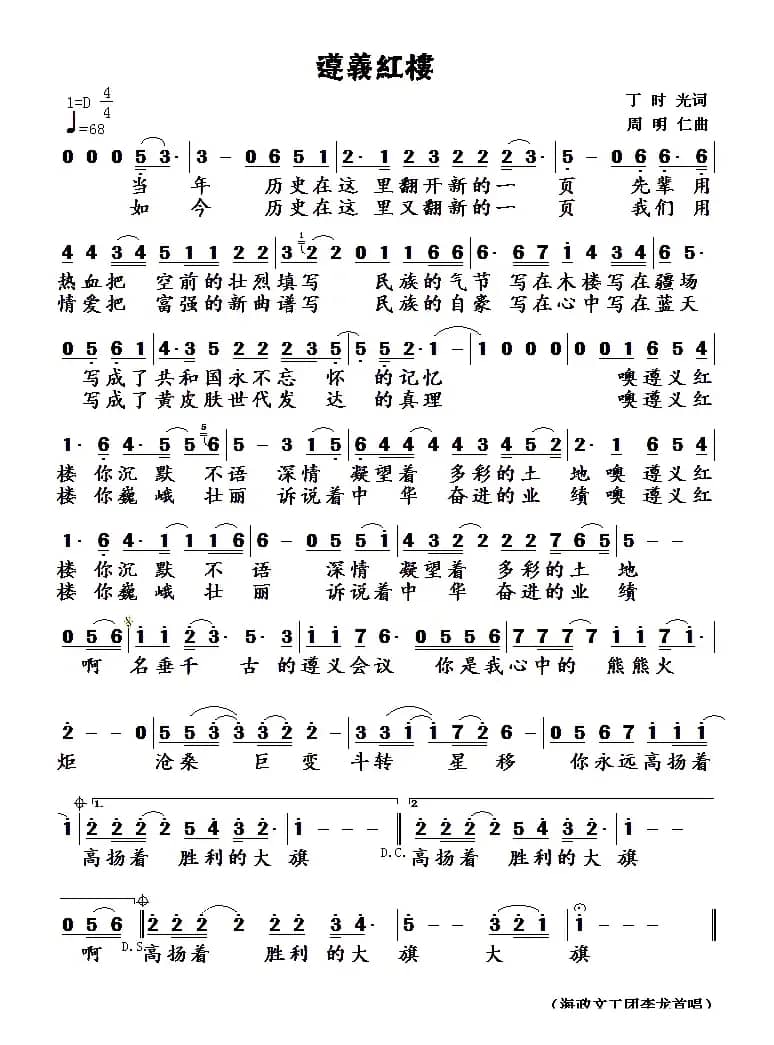 遵義紅樓
1=D 4/4
♩=68
丁 时 光词
周 明 仁曲
0 0 0 5 3· 3 – 0 6 5 1 2· 1 2 3 2 2 2 2 3 5 – 0 6 6· 6
当 年 历 史 在 这 里 翻 开 新 的 一 页 先 辈 用
如 今 历 史 在 这 里 又 翻 新 的 一 页 我 们 用
4 4 3 4 5 1 1 2 2 3 1 2 2 0 1 1 6 6 6· 6 7 i 4 3 4 6 5·
热 血 把 空 前 的 壮 烈 填 写 民 族 的 气 节 写 在 木 楼 写 在 疆 场
情 爱 把 富 强 的 新 曲 谱 写 民 族 的 自 豪 写 在 心 中 写 在 蓝 天
0 5 6 1 4· 3 5 2 2 2 3 5 5· 5 2· 1 – 1 0 0 0 0 0 1 6 5 4
写 成 了 共 和 国 永 不 忘 怀 的 记 忆 噢 遵 义 红
写 成 了 黄 皮 肤 世 代 发 达 的 真 理 噢 遵 义 红
1· 6 4· 5 5 5 6 5 – 3 1 5 6 4 4 4 3 4 5 2 2· 1 6 5 4
楼 你 沉 默 不 语 深 情 凝 望 着 多 彩 的 土 地 噢 遵 义 红
楼 你 巍 峨 壮 丽 诉 说 着 中 华 奋 进 的 业 绩 噢 遵 义 红
1· 6 4· 1 1 1 6 6 – 0 5 5 i 4 3 2 2 2 2 7 6 5 5 – –
楼 你 沉 默 不 语 深 情 凝 望 着 多 彩 的 土 地
楼 你 巍 峨 壮 丽 诉 说 着 中 华 奋 进 的 业 绩
0 5 6 i i 2 3· 5· 3 i i 7 6· 0 5 5 6 7 7 7 7 i i 7 i·
啊 名 垂 千 古 的 遵 义 会 议 你 是 我 心 中 的 熊 熊 火
2 – – 0 5 5 3 3 3 3 2 2· 3 3 1 1 7 2 6 – 0 5 6 7 i i i
炬 沧 桑 巨 变 斗 转 星 移 你 永 远 高 扬 着
1. 2
i 2 2 2 2 5 4 3 2· i – – – 2 2 2 2 5 4 3 2 i – – –
高 扬 着 胜 利 的 大 旗 D.C. 高 扬 着 胜 利 的 大 旗
0 5 6 2 2 2 2· 2 2 2 3 4· 5 – – 3 2 i i –
啊 D.S. 高 扬 着 胜 利 的 大 旗 大 旗
（海政文工团李龙首唱）